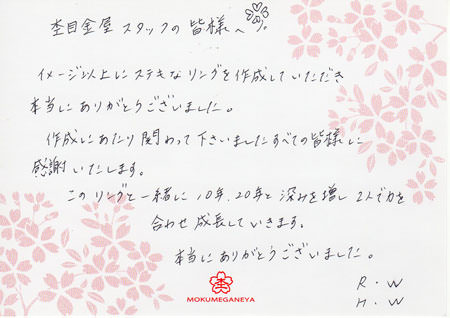 杢目金屋 スタッフの皆様へ
イメージ以上にステキなリングを作成していただき
本当にありがとうございました。
作成にあたり関わって下さいましたすべての皆様に
感謝いたします。
このリングと一緒に10年、20年と深みを増し2人で力を
合わせ成長していきます。
本当にありがとうございました。
杢
MOKUMEGANEYA
R・W
H・W